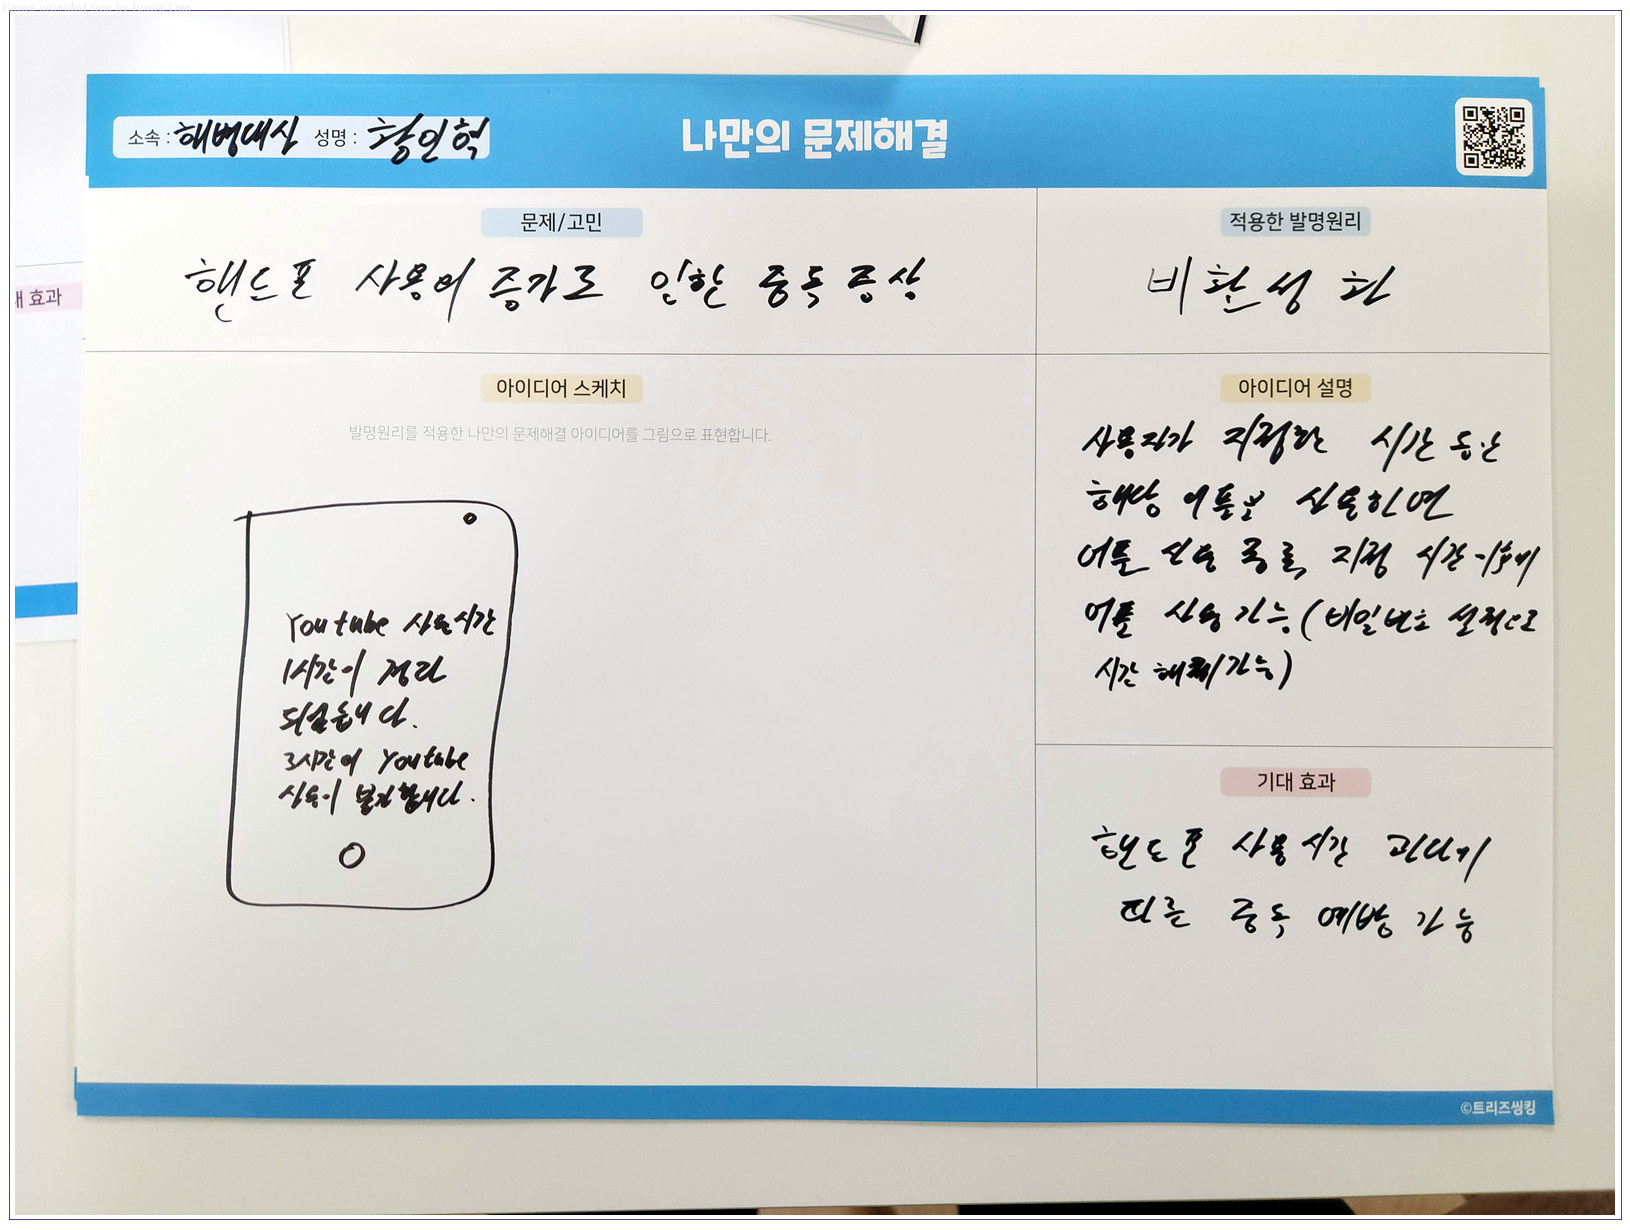 소속 : 해병대상 성명 : 황인혁
나만의 문제해결
문제/고민
핸드폰 사용의 증가로 인한 중독 증상
적용한 발명원리
비활성화
아이디어 스케치
발명원리를 적용한 나만의 문제해결 아이디어를 그림으로 표현합니다.
Youtube 사용시간
1시간이 경과
되셨습니다.
3시간이 Youtube
사용이 불가합니다.
아이디어 설명
사용자가 지정한 시간 동안
해당 어플을 사용하면
어플 사용 종료, 지정 시간 이후에
어플 사용 가능 (비밀번호 설정으로
시간 해제 가능)
기대 효과
핸드폰 사용시간 과다에
따른 중독 예방 가능
대 효과
©트리즈씽킹